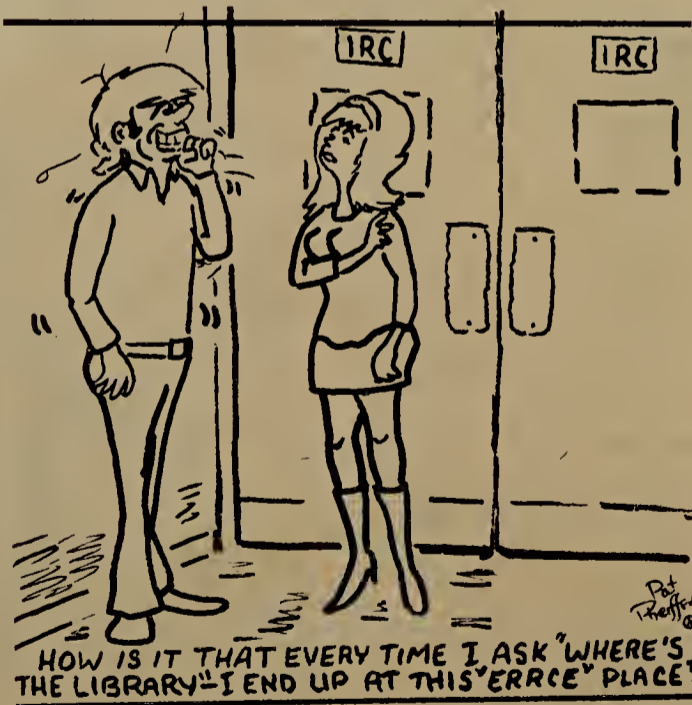 IRC
IRC
Pat
HOW IS IT THAT EVERY TIME I ASK "WHERE'S
THE LIBRARY"-I END UP AT THIS "ERRCE" PLACE?